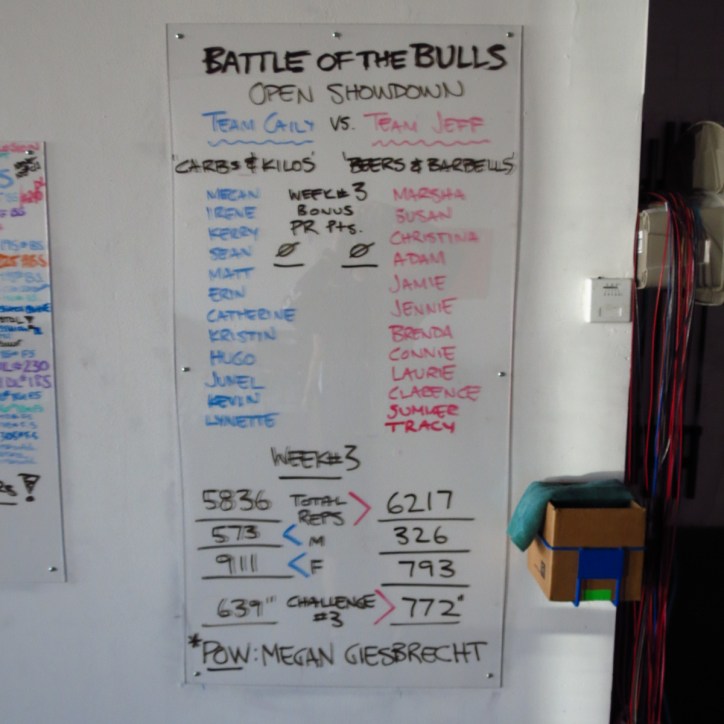 BATTLE OF THE BULLS
OPEN SHOWDOWN
TEAM CAILY VS. TEAM JEFF
'CARBS & KILOS' 'BEERS & BARBELLS'
MEGAN WEEK #3 MARSHA
IRENE BONUS SUSAN
KERRY PR PTS. CHRISTINA
SEAN Ø Ø ADAM
MATT JAMIE
ERIN JENNIE
CATHERINE BRENDA
KRISTIN CONNIE
HUGO LAURIE
JUNEL CLARENCE
KEVIN SUMLER
LYNETTE TRACY
WEEK #3
5836 TOTAL REPS > 6217
573 < M 326
911 < F 793
639" CHALLENGE #3 > 772"
*POW: MEGAN GIESBRECHT